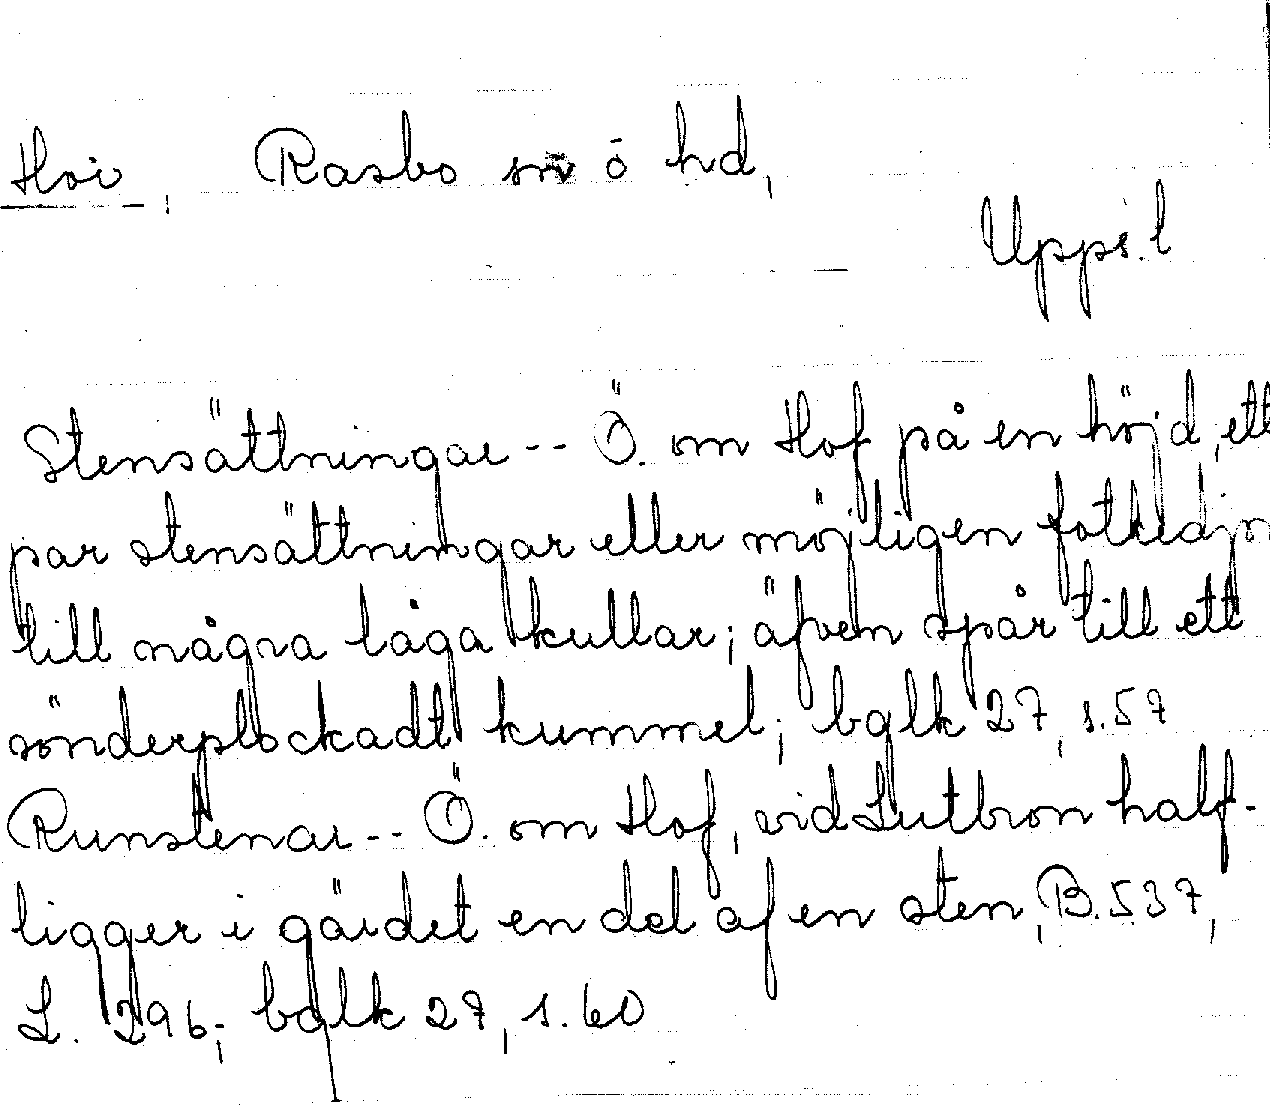 Hov, Rasbo sn o hd,
Upps.l
Stensättningar -- Ö. om Hof på en höjd, ett
par stensättningar eller möjligen fotkedjor
till några låga kullar; äfven spår till ett
sönderplockadt kummel; bglk 27, s.57
Runstenar -- Ö. om Hof, vid Lutbron half-
ligger i gärdet en del af en sten, B.537,
L. 296; bglk 27, s.60